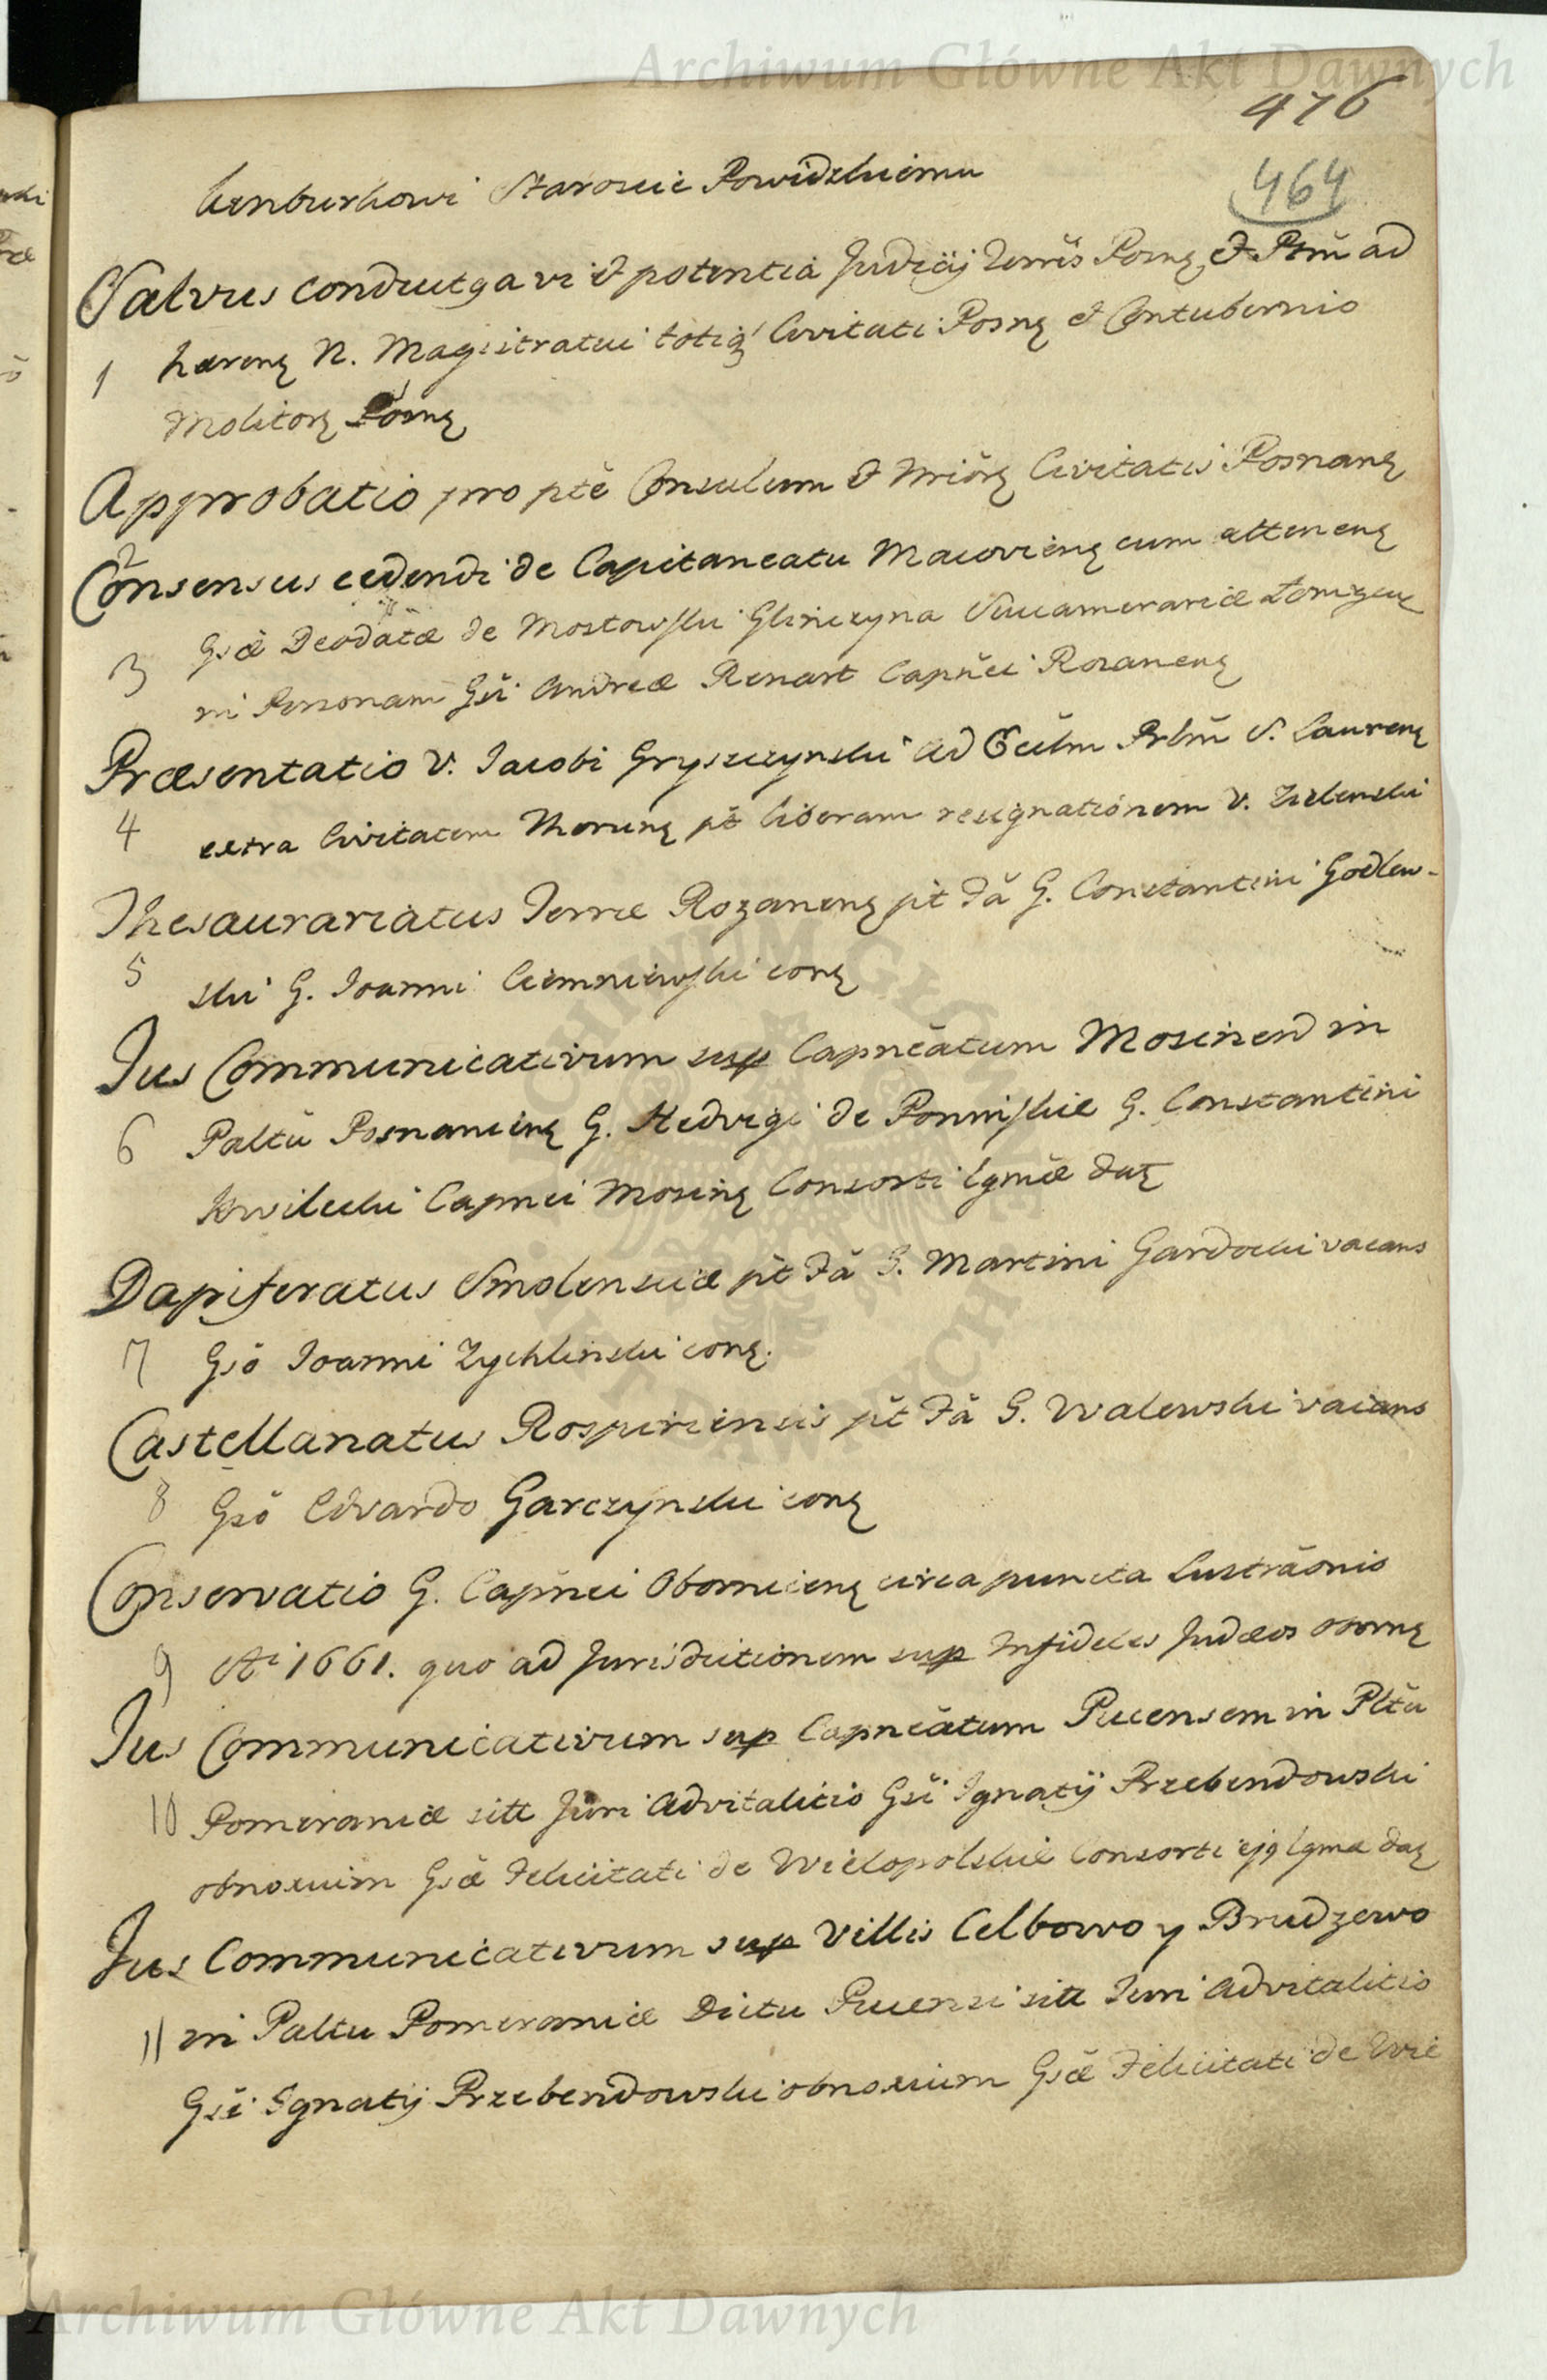 Archiwum Główne Akt Dawnych
476
464
kenburkowi Staroscie Powidzkiemu
Salvus conductg a vi et potentia Judicij Terrês Posnȩ et Ptrm̃ ad
1 hærenȩ N. Magistratui totiq' Civitati Posnȩ et Contubernio
Molitorȩ Posnȩ
Approbatio pro ptê Consulum et Mriõrȩ Civitatis Posnanȩ
2
Consensus cedendi de Capitaneatu Macovienȩ cum attenenȩ
3 Gsæ Deodatæ de Mostowski Glinczyna Succamerariæ Łomzenȩ
in Personam Gsi Andreæ Renart Capñei Rozanenȩ
Præsentatio V. Jacobi Gryszczynski ad Ecclm̃ Prlm̃ S. Laurenȩ
4 extra Civitatem Thorunȩ pt̃ liberam resignationem V. Zielenski
Thesaurariatus Terræ Rozanenȩ pt̃ Fã G. Constantini Godlew-
5 ski G. Joanni Ciemniewski conȩ
Jus Communicativum sup Capnẽatum Mosinen in
6 Paltũ Posnanienȩ G. Hedvigi de Poninskie G. Constantini
Kwilecki Capnei Mosinȩ Consorti lgmæ datȩ
Dapiferatus Smolensciæ pt̃ Fã G. Martini Gardocki vacans
7 Gsõ Joanni Zychlinski conȩ.
Castellanatus Rospiriensis pt̃ Fã G. Walewski vacans
8 Gsõ Edvardo Garczynski conȩ
Conservatio G. Capñei Obornicenȩ circa puncta Lustrãonis
9 Ai 1661. quo ad Jurisdictionem sup Infideles Judæos Obornȩ
Jus Communicativum sup Capnẽatum Pucensem in Pltũ
10 Pomeraniæ sitt Juri Advitalitio Gsi Ignatij Przebendowski
obnoxium Gsæ Felicitati de Wielopolskie Consorti ejg lgmæ daȩ
Jus Communicativum sup Villis Celbowo y Brudzewo
11 in Paltu Pomeraniæ Dictu Pucensi sitt Juri Advitalitio
Gsi Ignatij Przebendowski obnoxium Gsæ Felicitati de Wie
Archiwum Główne Akt Dawnych